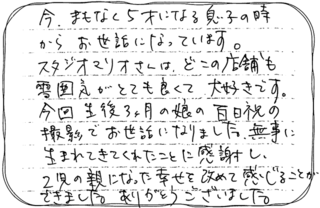 今、まもなく5才になる息子の時
からお世話になっています。
スタジオマリオさんは、どこの店舗も
雰囲気がとても良くて大好きです。
今回生後3ヶ月の娘の百日祝の
撮影でお世話になりました。無事に
生まれてきてくれたことに感謝し、
2児の親になった幸せを改めて感じることが
できました。ありがとうございました。